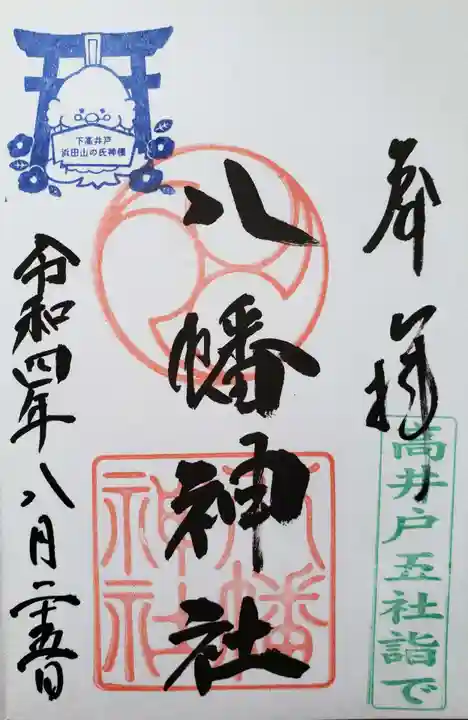 奉拝
高井戸五社詣で
八幡神社
八幡
神社
下高井戸
浜田山の氏神様
令和四年八月二十五日